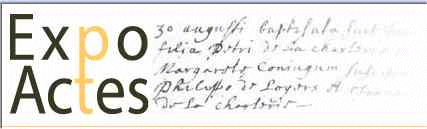 Expo
Actes
30 augusti baptisata fuit
filia Petri de la charlou
Margareta Coningum
philippo de Loyers
de la charlouis